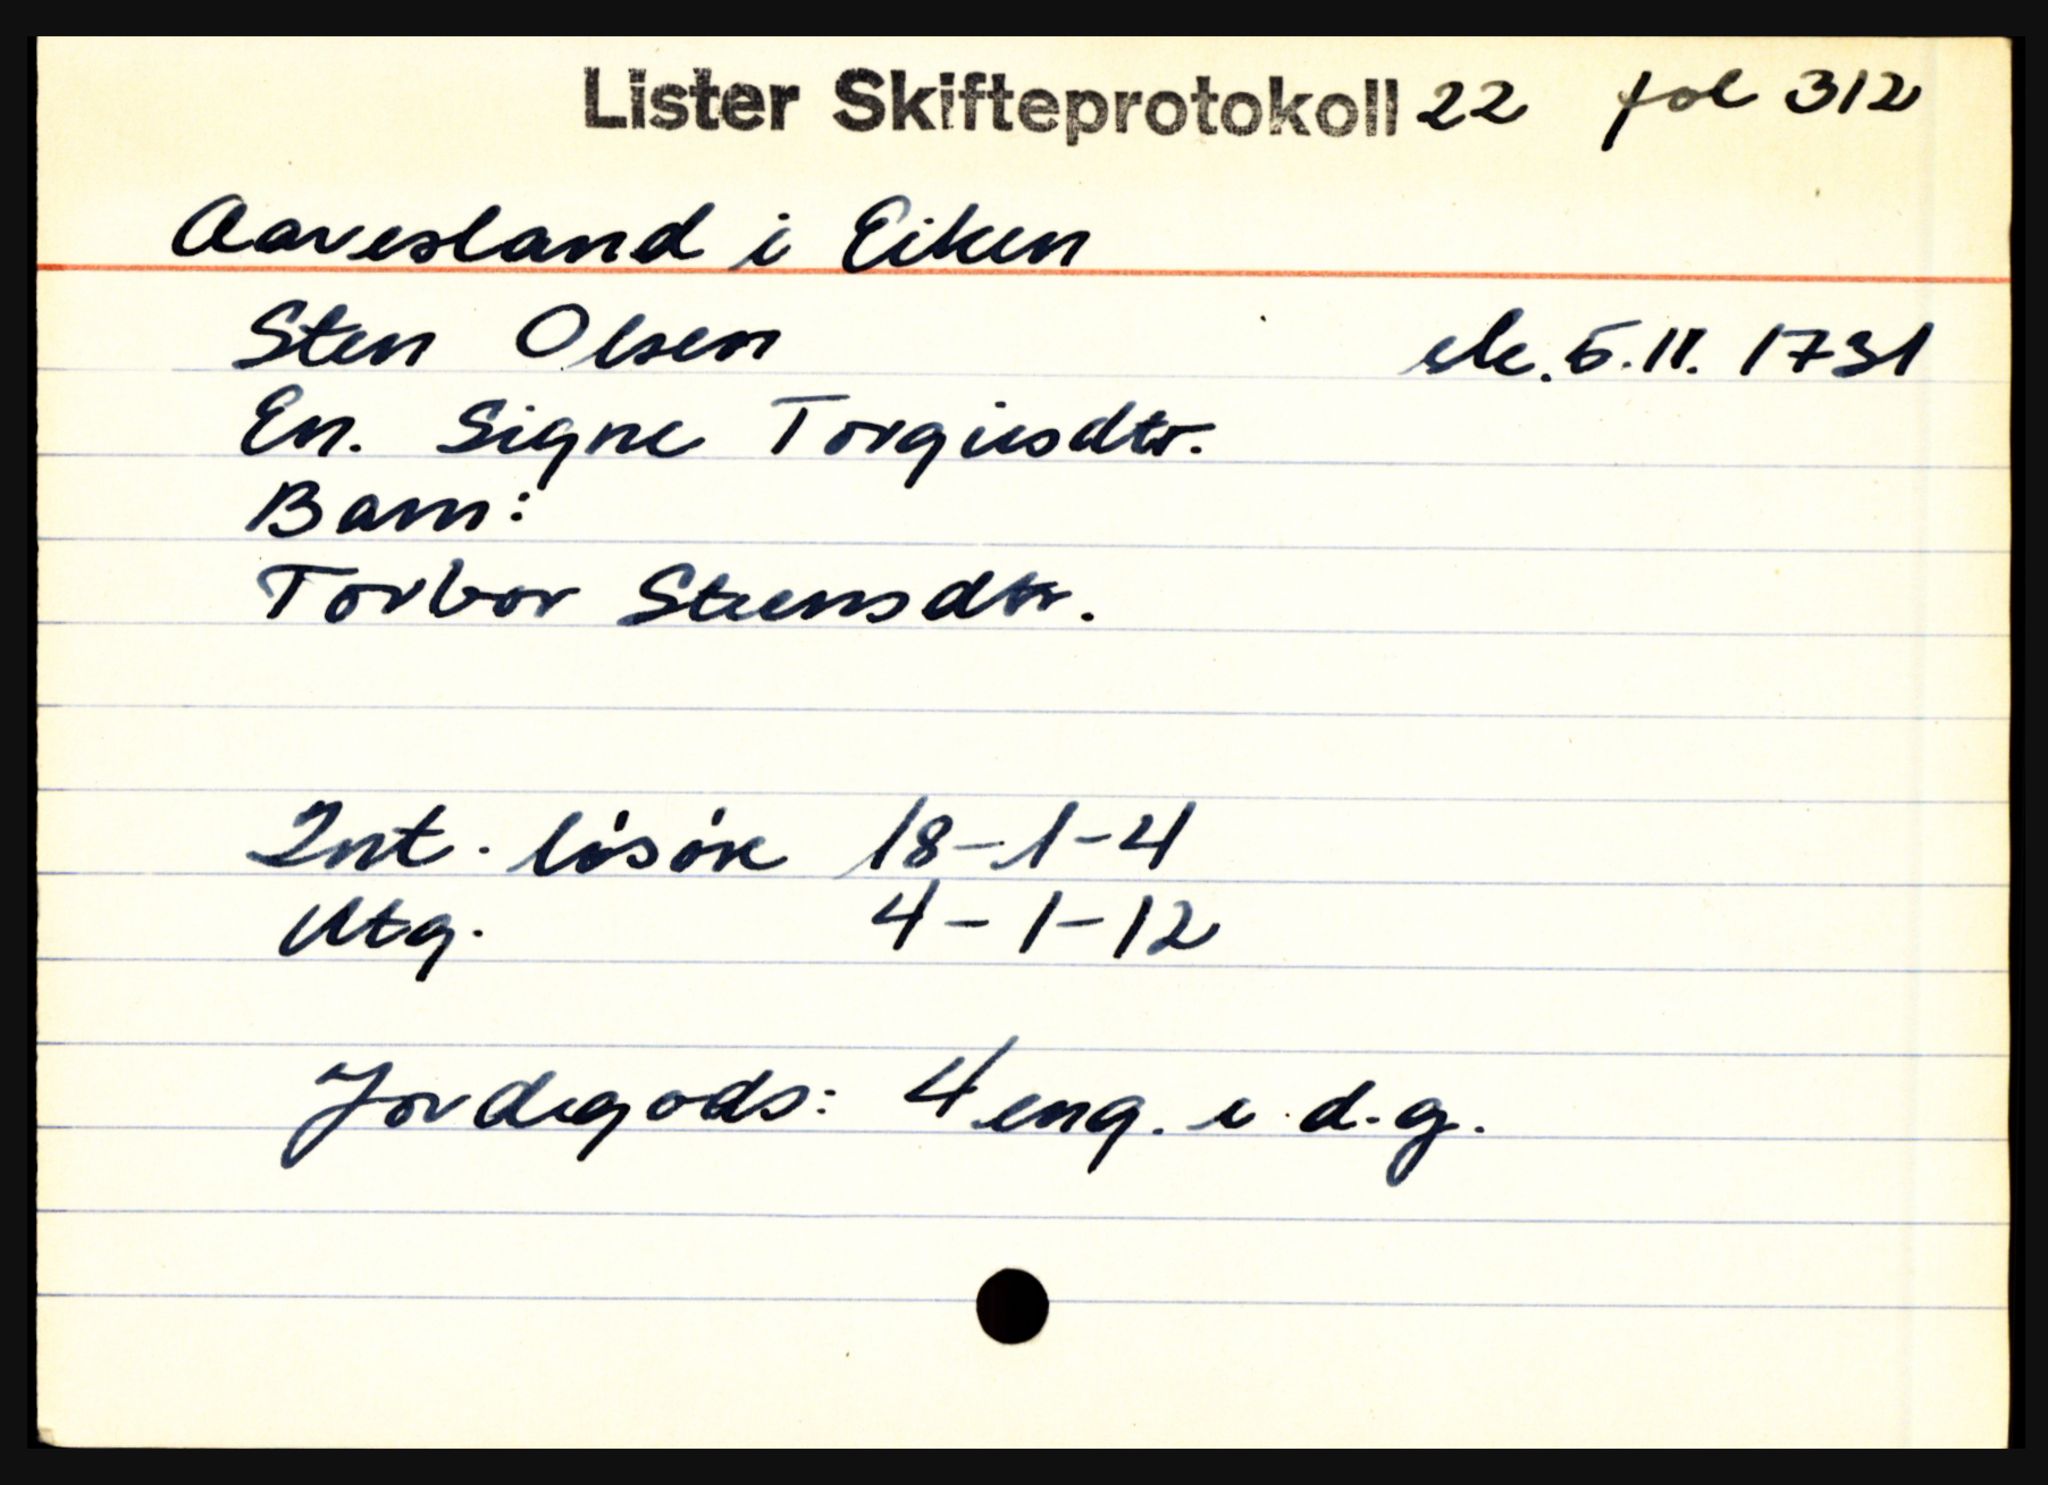 Lister Skifteprotokoll 22 fol 312
Aavesland i Eiken
Sten Olsen sk. 5.11. 1731
En. Signe Torgiesdtr.
Barn:
Torbor Steensdtr.
Int. lösöre 18-1-4
Utg. 4-1-12
Jordegods: 4 eng. i d.g.